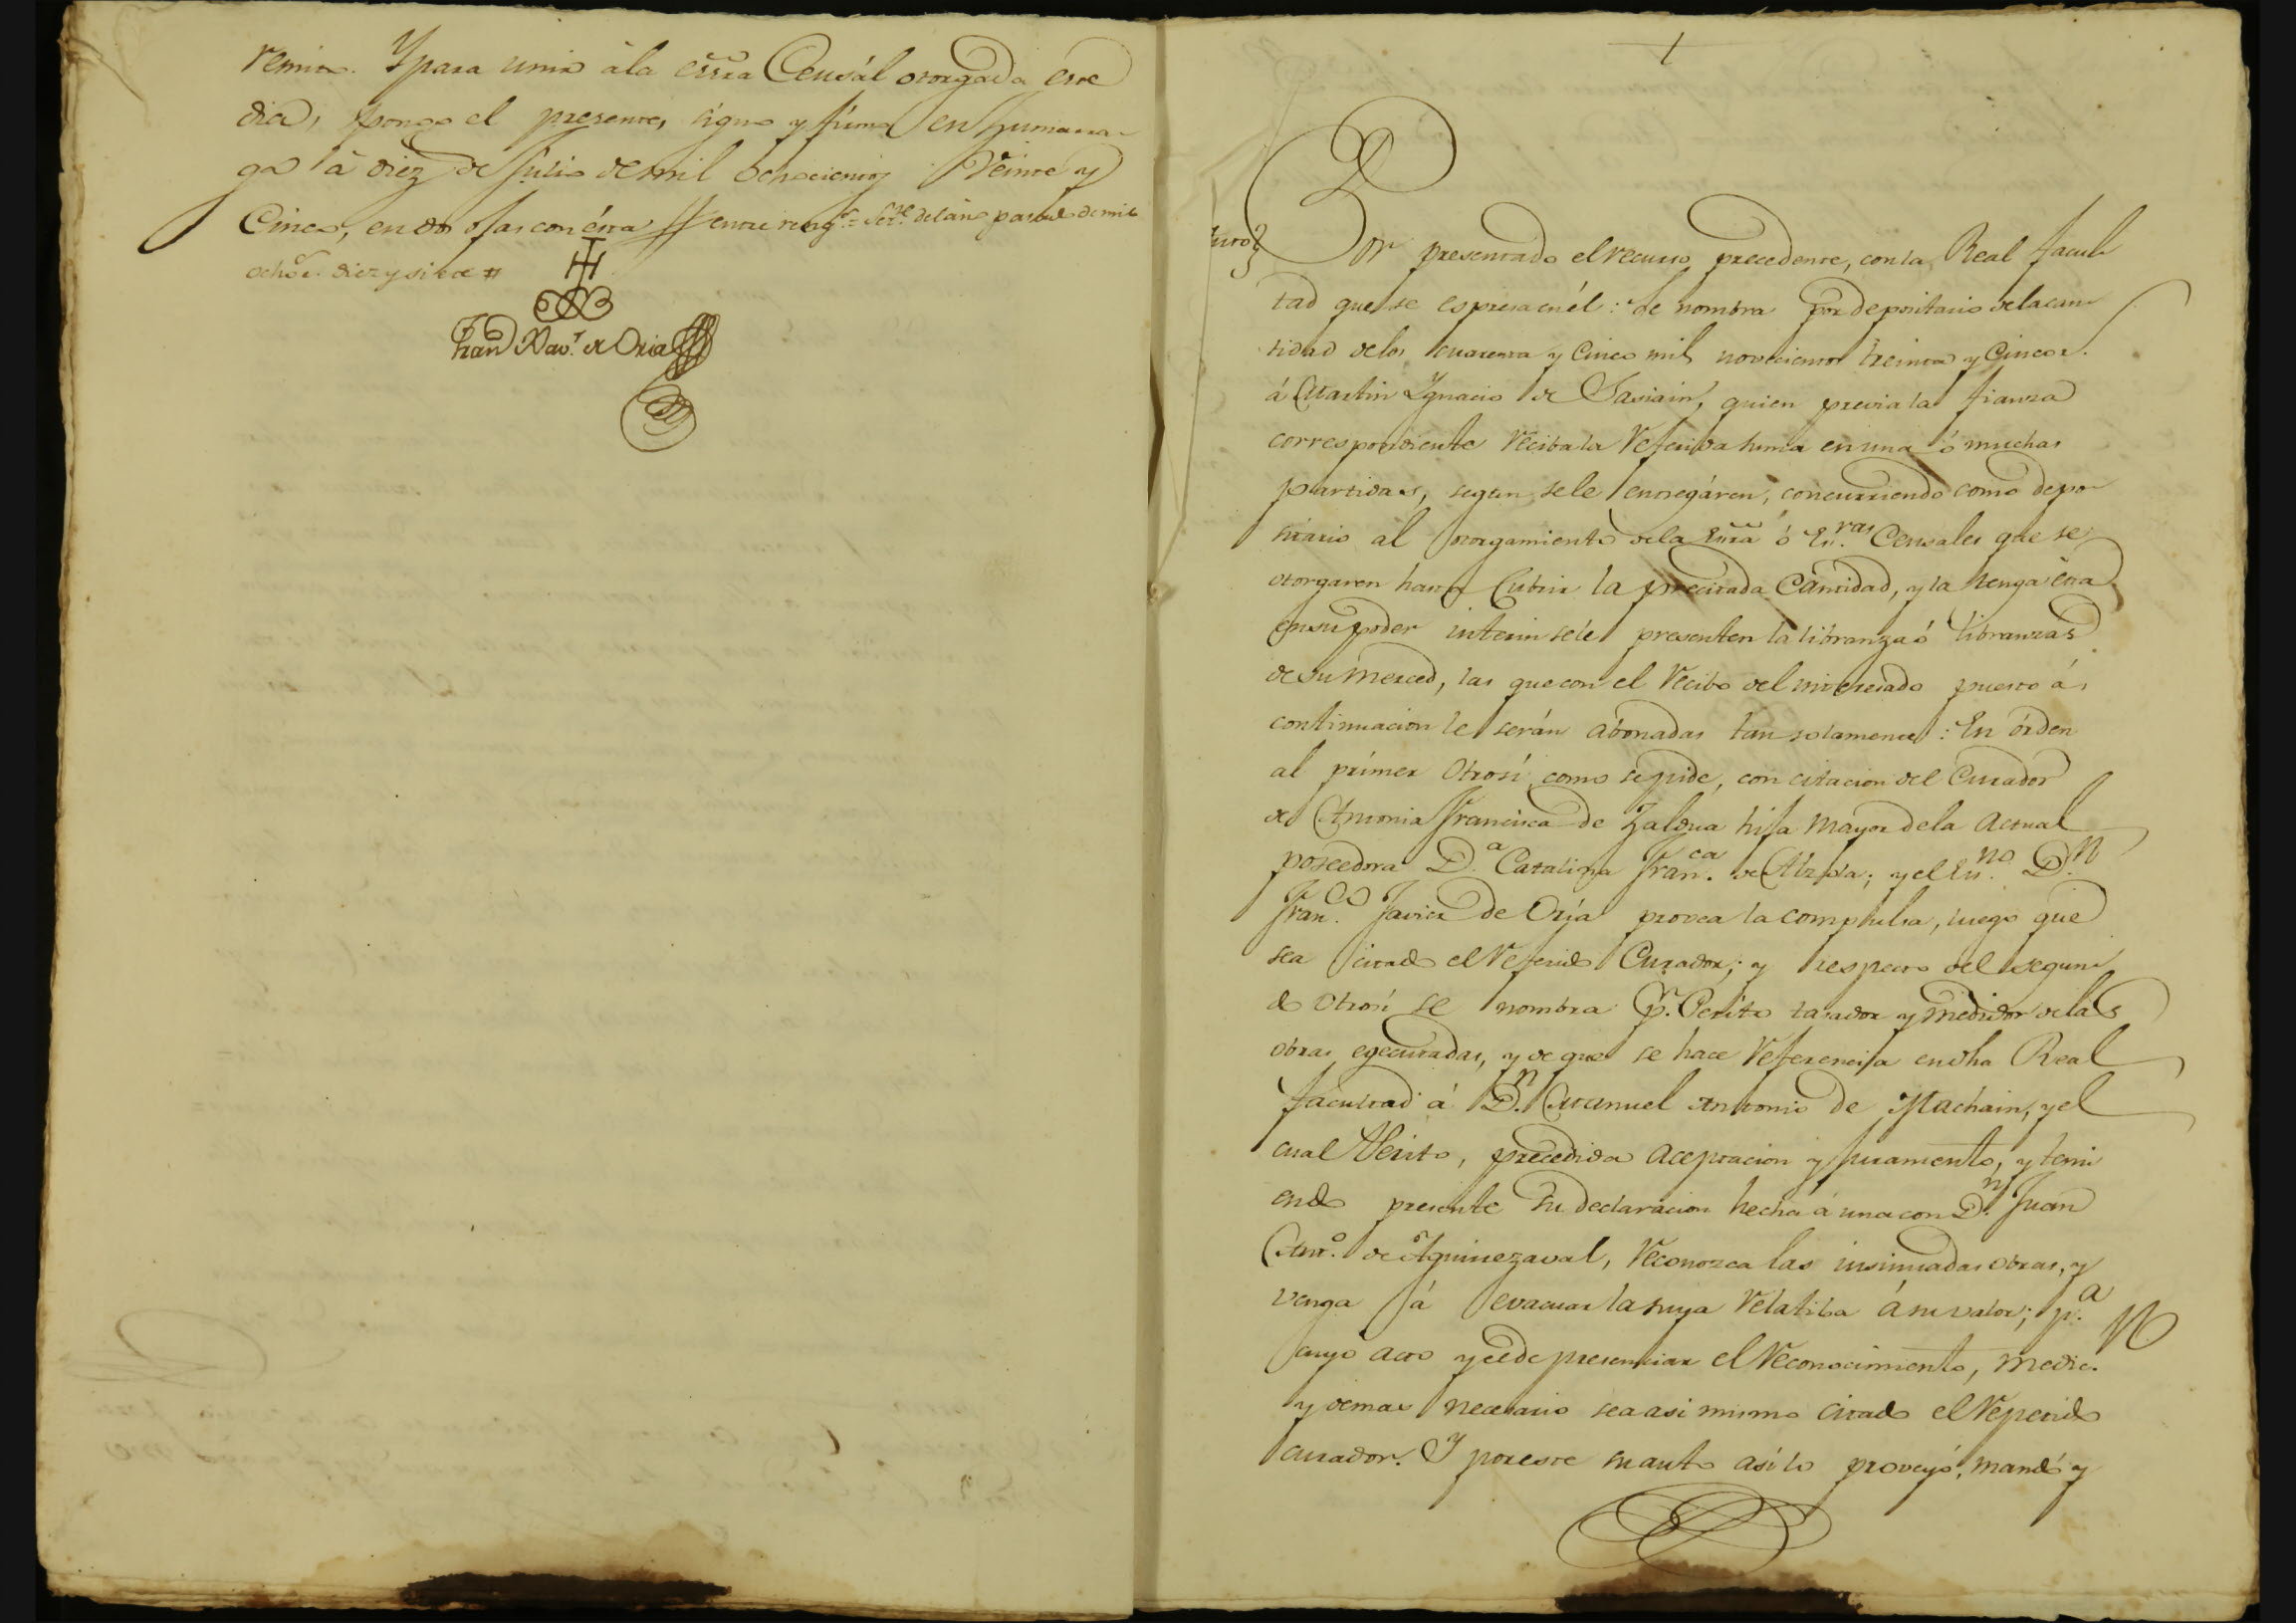 remito. Y para unir á la essra Censál otorgada este
dia, pongo el presente, signo y firmo en Zumarra-
ga á diez de Julio de mil ochocientos Veinte y
Cinco, en dos ojas con ésta entre reng.s = del año pasado de mil
ochos. diez y siete =
Fran Xav.r de Oria
Auto
Por presentado el recurso precedente, con la Real facul-
tad que se espresa en él: se nombra por depositario de la can-
tidad de los cuarenta y Cinco mil novecientos treinta y Cinco r.
á Martin Ygnacio de Sasiain, quien previa la fianza
correspondiente reciba la referida suma en una ó muchas
partidas, segun se le entregáren, concurriendo como depo-
sitario al otorgamiento de la Essra ó Es.ras Censales que se
otorgaren hasta Cubrir la precitada Cantidad, y la tenga ésta
en su poder interin se le presenten la libranza ó libranzas
de su Merced, las que con el recibo del interesado puesto á
continuacion le serán abonadas tan solamente: En órden
al primer Otrosi, como se pide, con citacion del Curador
de Antonia Francisca de Zaldua hija mayor de la actual
poseedora D.a Catalina Fran.ca de Alzola; y el Es.no D.n
Fran.co Javier de Oria provea la compulsa, luego que
sea citado el referido Curador; y respecto del segun-
do Otrosi se nombra p.r Perito tasador y medidor de las
obras egecutadas, y de que se hace referencia en dha Real
facultad á D.n Manuel Antonio de Machain, y el
cual Perito, precedida aceptacion y juramento, y teni-
endo presente su declaracion hecha á una con D.n Juan
Ant.o de Aguinezaval, reconozca las insinuadas obras, y
venga á evacuar la suya relatiba á su valor; p.a
cuyo acto y el de presenciar el reconocimiento, medic.n
y demas necesario sea asi mismo citado el referido
curador. Y por este su auto asi lo proveyó, mandó y